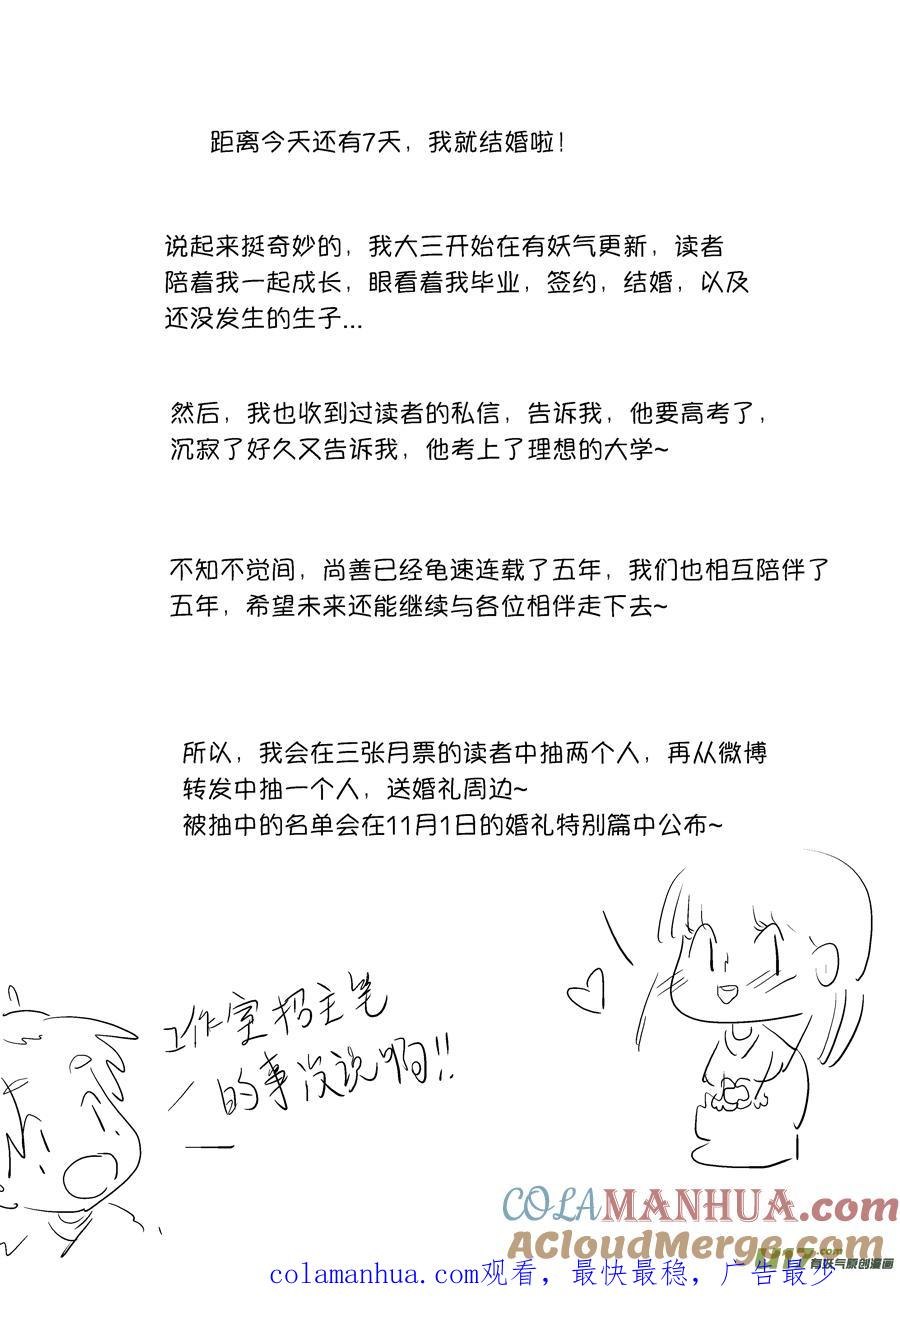 距离今天还有7天，我就结婚啦！
说起来挺奇妙的，我大三开始在有妖气更新，读者
陪着我一起成长，眼看着我毕业，签约，结婚，以及
还没发生的生子...
然后，我也收到过读者的私信，告诉我，他要高考了，
沉寂了好久又告诉我，他考上了理想的大学~
不知不觉间，尚善已经龟速连载了五年，我们也相互陪伴了
五年，希望未来还能继续与各位相伴走下去~
所以，我会在三张月票的读者中抽两个人，再从微博
转发中抽一个人，送婚礼周边~
被抽中的名单会在11月1日的婚礼特别篇中公布~
工作室招主笔
的事没说啊!!
COLAMANHUA.com
ACloudMerge.com
U17.com
有妖气原创漫画
colamanhua.com观看，最快最稳，广告最少